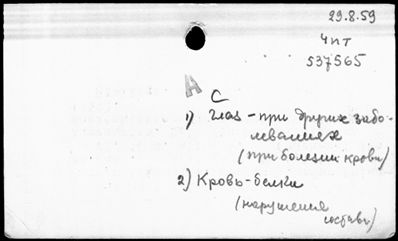 29.8.59
4 пт
537565
А
С
1) Глаз - при других забо-
леваниях
(при болезни крови)
2) Кровь-белки
(нарушения
состава)